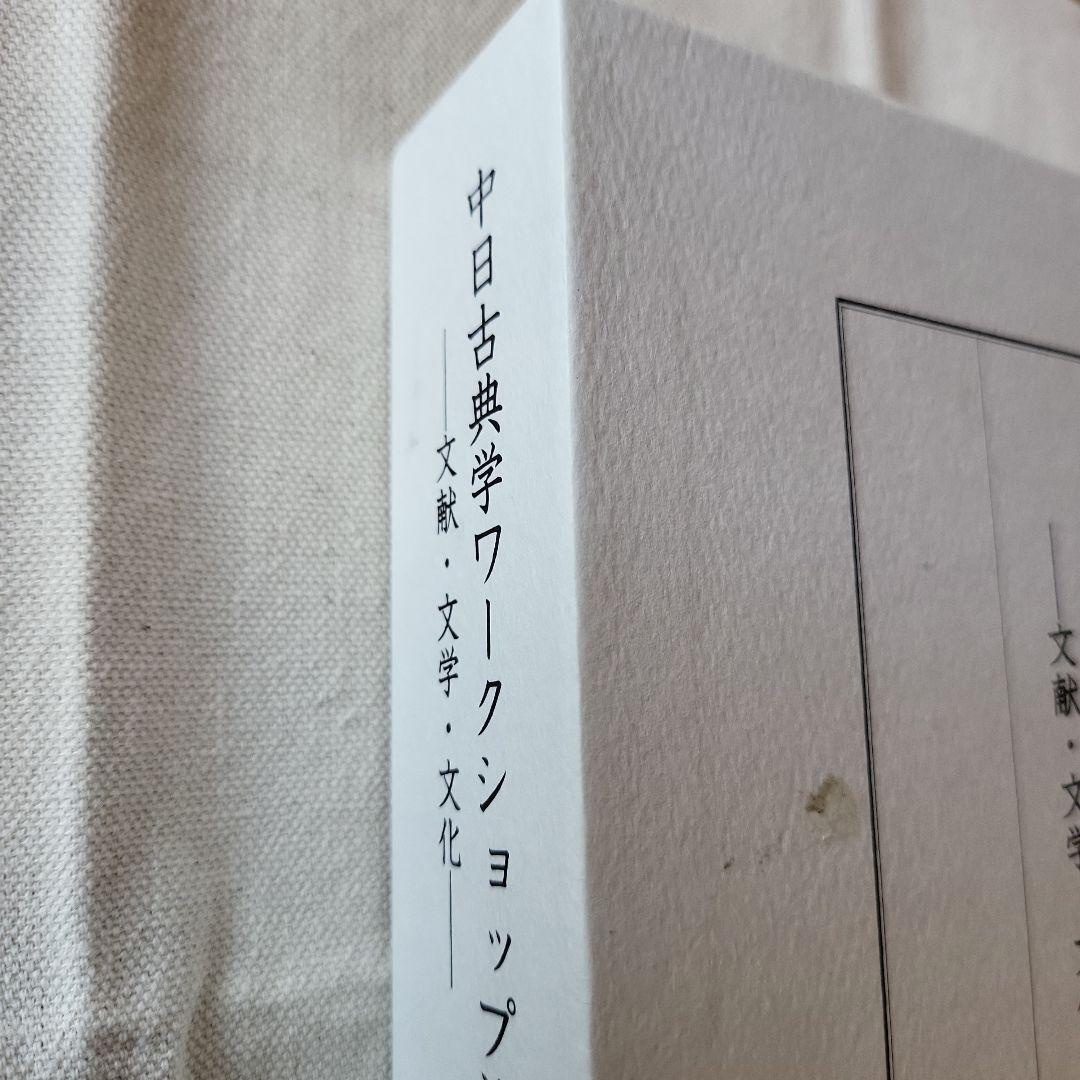 中日古典学ワークショップ
――文献・文学・文化――
――文献・文学